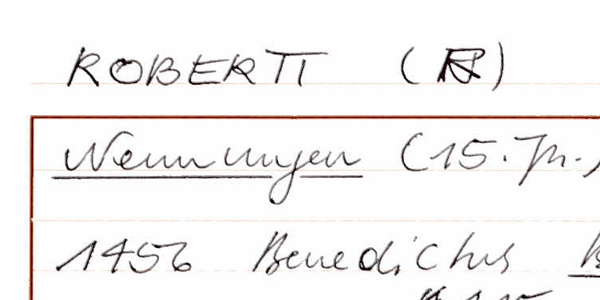 ROBERTI (R)
Nennungen (15. Jh.)
1456 Benedictus